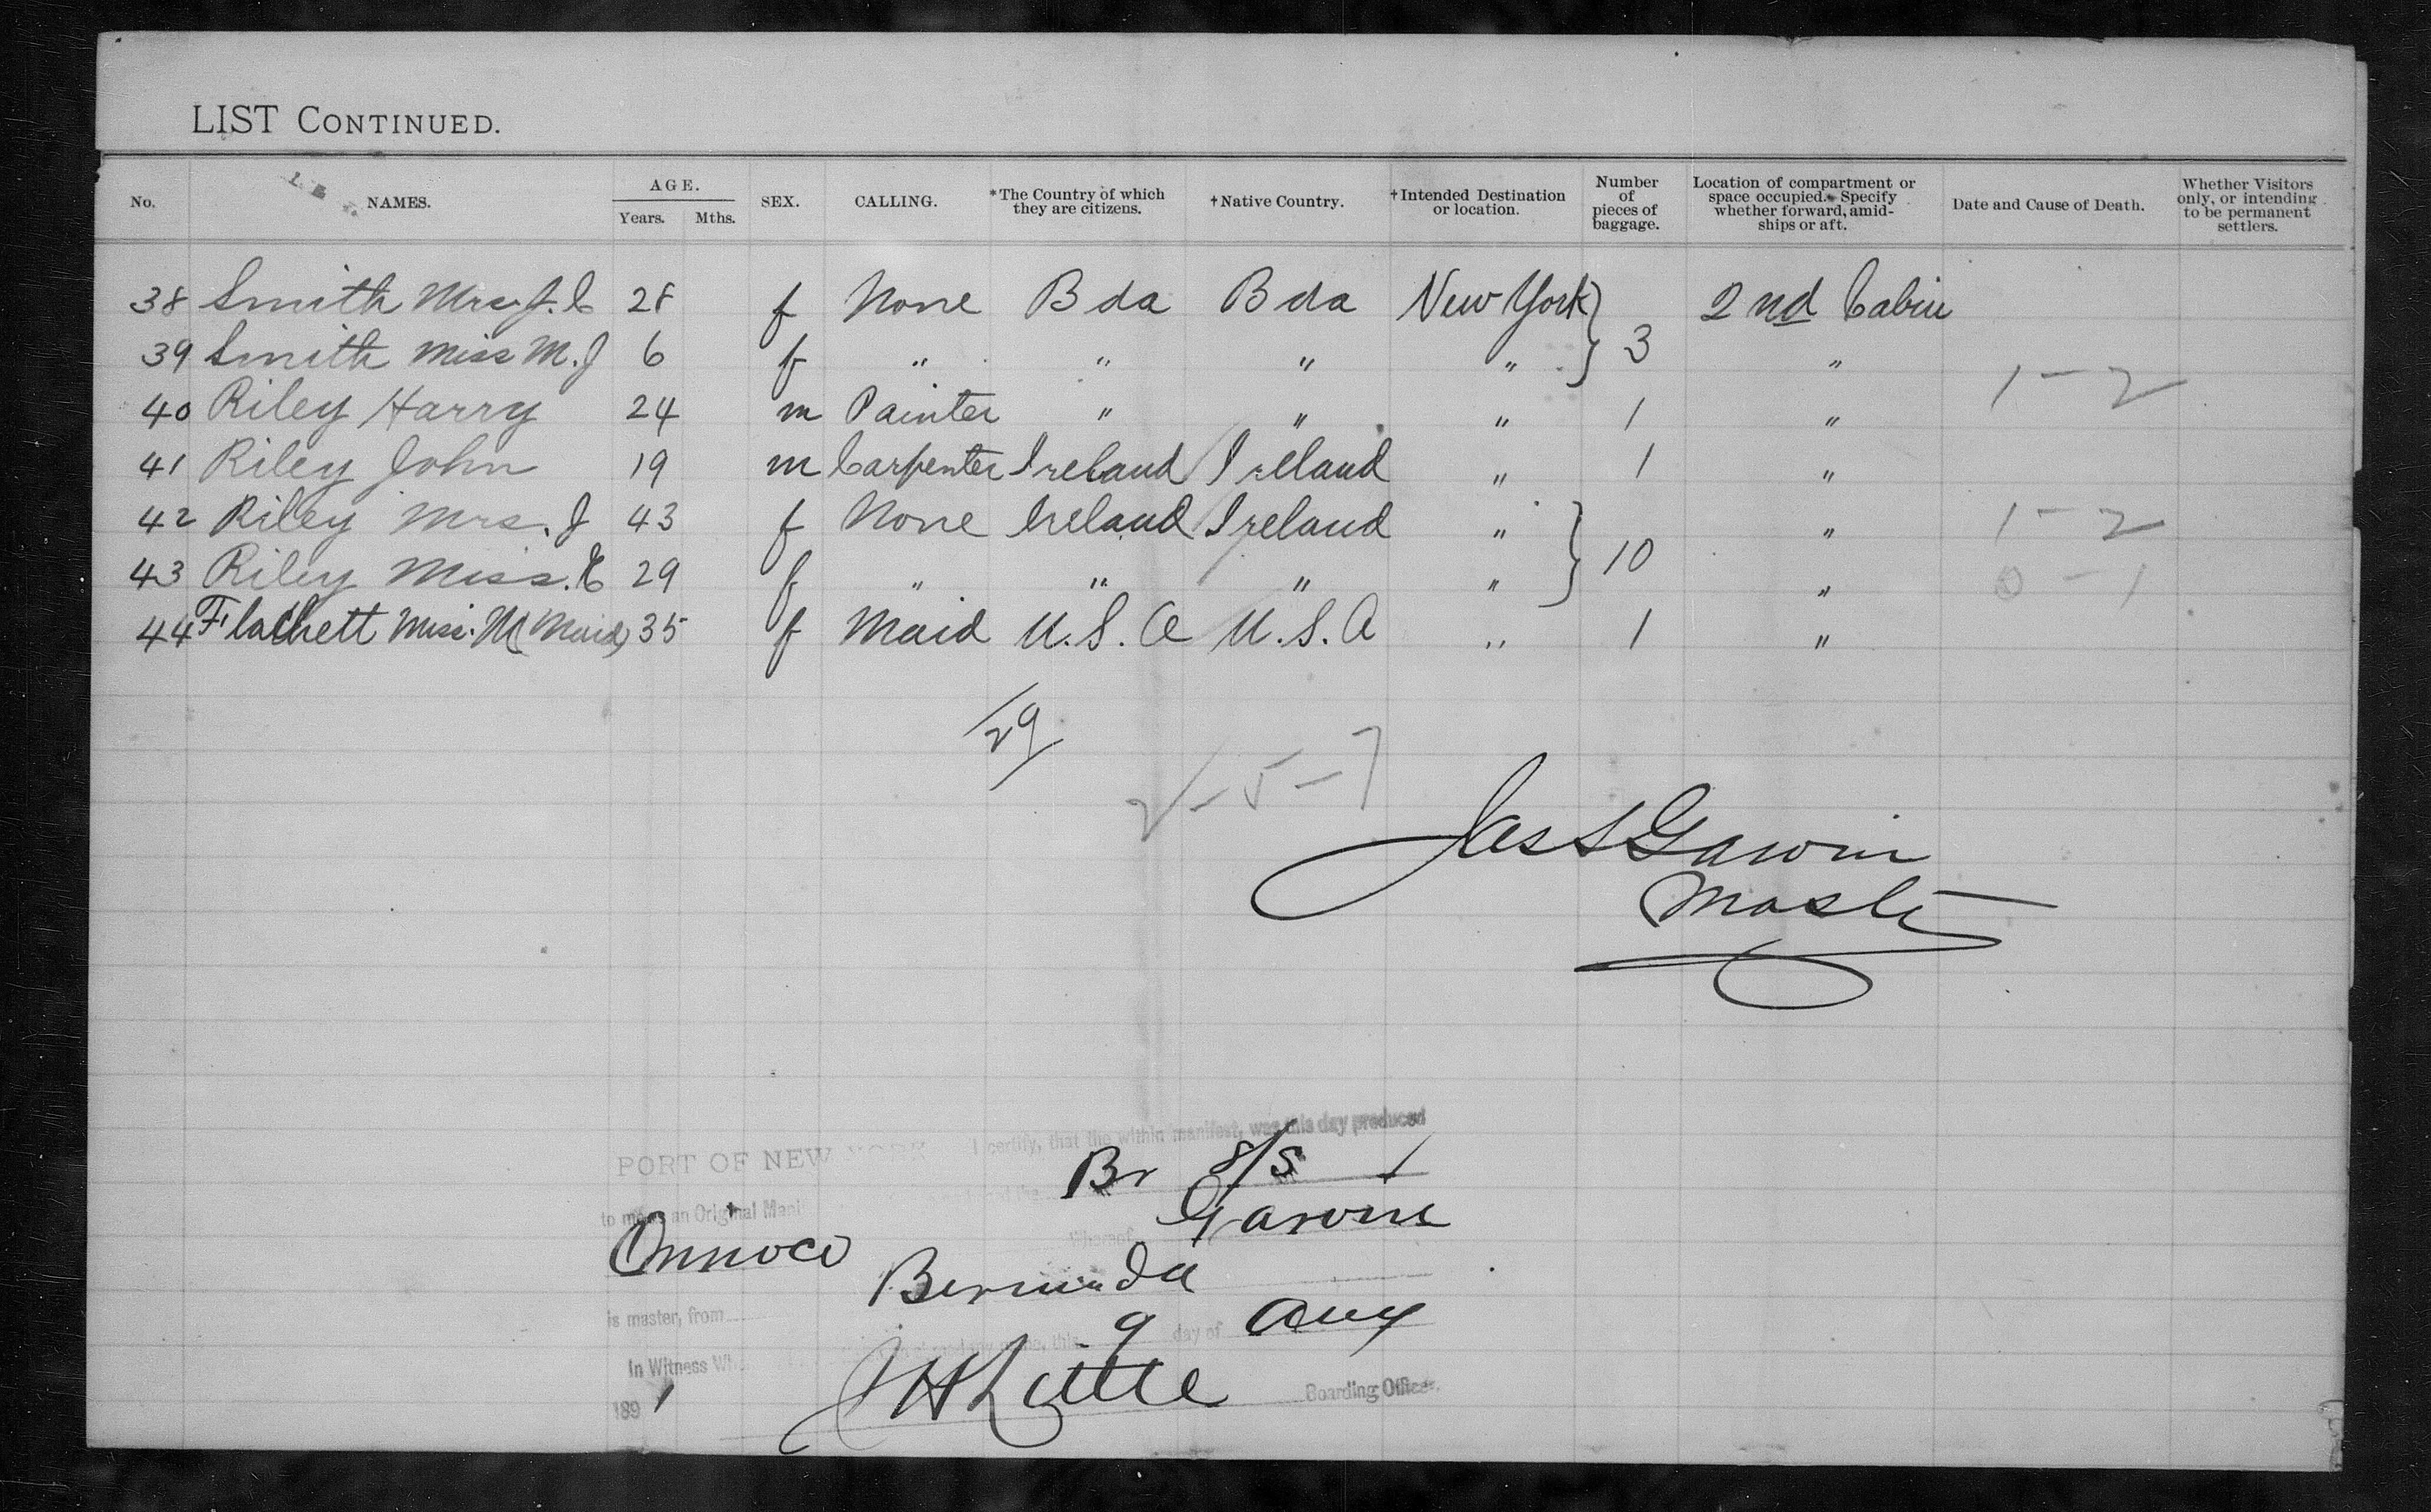 LIST CONTINUED.
No. NAMES. AGE. Years. Mths. SEX. CALLING. *The Country of which they are citizens. †Native Country. †Intended Destination or location. Number of pieces of baggage. Location of compartment or space occupied. Specify whether forward, amidships or aft. Date and Cause of Death. Whether Visitors only, or intending to be permanent settlers.
38 Smith Mrs. J. C 28 f None Bda Bda New York } 3 2nd Cabin
39 Smith Miss M. J 6 f " " " " "
1-2
40 Riley Harry 24 m Painter " " " 1 "
41 Riley John 19 m Carpenter Ireland Ireland " 1 "
42 Riley Mrs. J 43 f None Ireland Ireland " } 10 " 1-2
43 Riley Miss. 29 f " " " " " 0-1
44 Miss. M (Maid) 35 f Maid U.S.A U.S.A " 1 "
29
2-5-7
Jas S Garvin
Master
PORT OF NEW YORK I certify, that the within manifest, was this day produced
Br S/S
to me as an Original Mani
Orinoco Garvin
is master, from Bermuda
In Witness Wh this 9 day of Aug
1891 Little Boarding Officer.